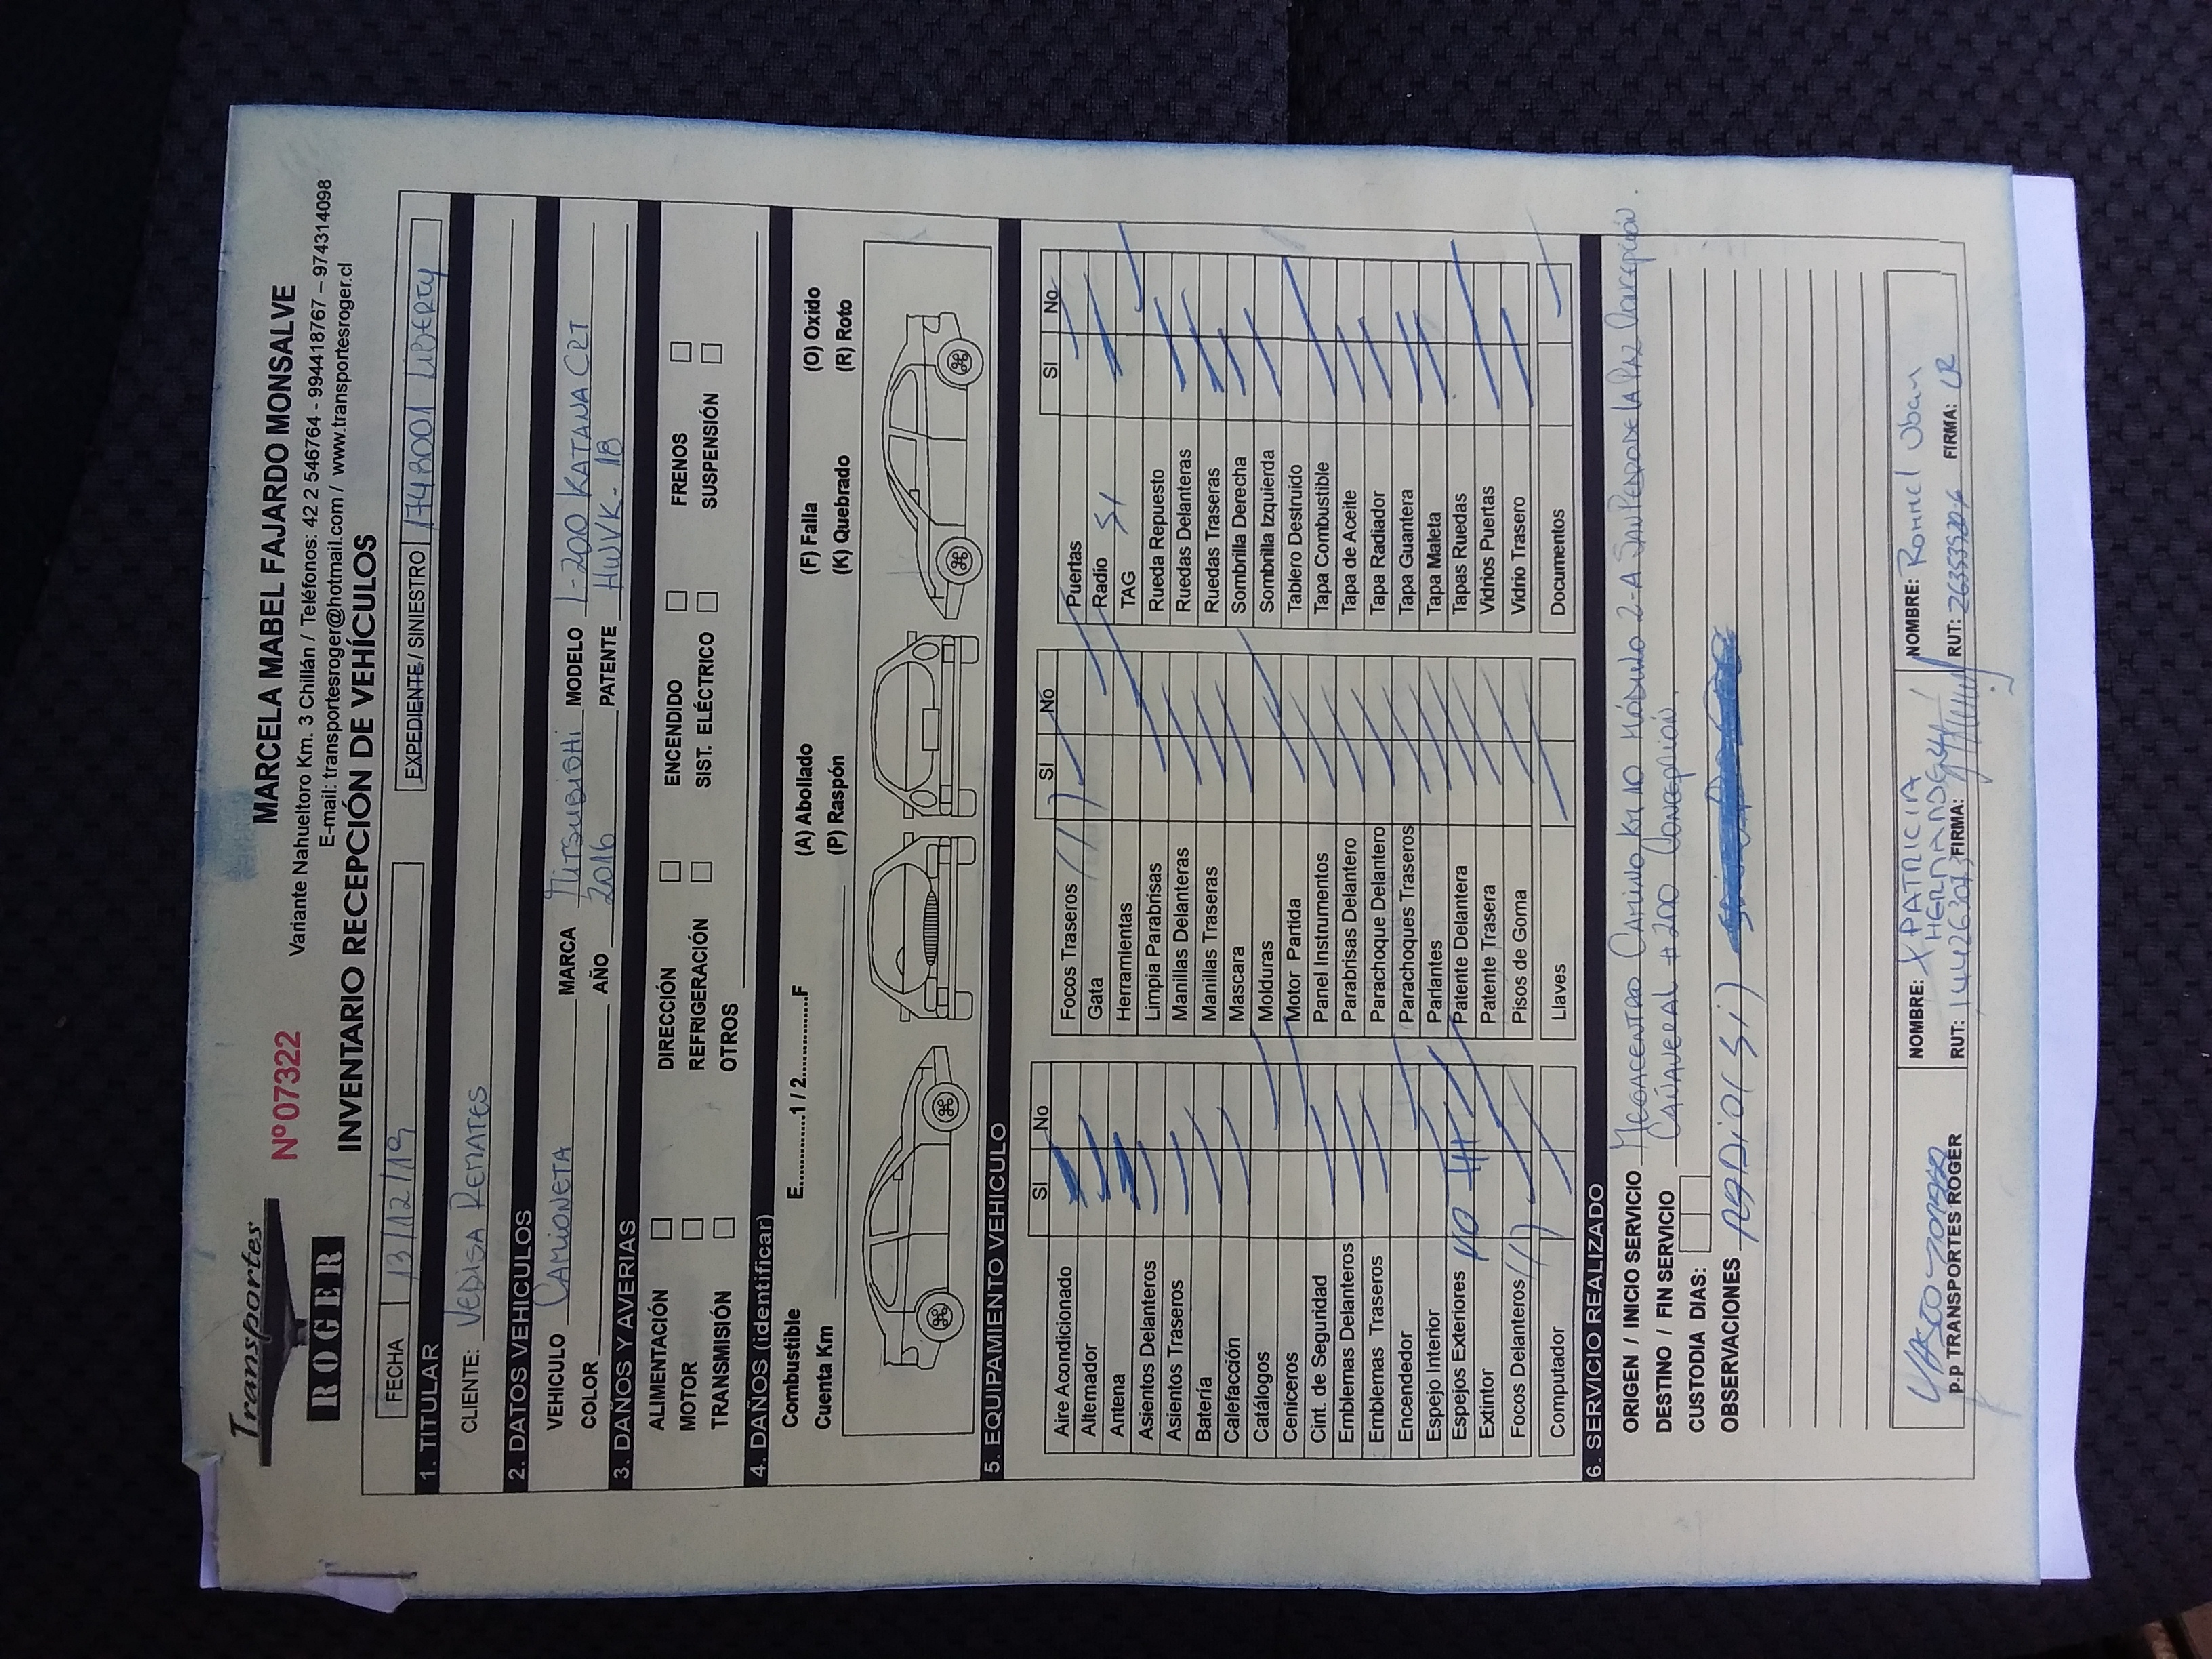 Transportes
ROGER
Nº 07322
MARCELA MABEL FAJARDO MONSALVE
Variante Nahueltoro Km. 3 Chillán / Teléfonos: 42 2 546764 - 994418767 – 974314098
E-mail: transportesroger@hotmail.com / www.transportesroger.cl
INVENTARIO RECEPCIÓN DE VEHÍCULOS
FECHA 13/12/19 EXPEDIENTE / SINIESTRO LIBERTY
1. TITULAR
CLIENTE: VEDISA REMATES
2. DATOS VEHICULOS
VEHICULO CAMIONETA MARCA MITSUBISHI MODELO L-200 KATANA CRT
COLOR AÑO 2016 PATENTE HWVK-18
3. DAÑOS Y AVERIAS
ALIMENTACIÓN DIRECCIÓN ENCENDIDO FRENOS
MOTOR REFRIGERACIÓN SIST. ELÉCTRICO SUSPENSIÓN
TRANSMISIÓN OTROS
4. DAÑOS (identificar)
Combustible E...........1 / 2...............F (A) Abollado (F) Falla (O) Oxido
Cuenta Km (P) Raspón (K) Quebrado (R) Roto
5. EQUIPAMIENTO VEHICULO
SI No SI No SI No
Aire Acondicionado Focos Traseros ( / ) Puertas
Alternador Gata Radio SI
Antena Herramientas TAG
Asientos Delanteros Limpia Parabrisas Rueda Repuesto
Asientos Traseros Manillas Delanteras Ruedas Delanteras
Batería Manillas Traseras Ruedas Traseras
Calefacción Mascara Sombrilla Derecha
Catálogos Molduras Sombrilla Izquierda
Ceniceros Motor Partida Tablero Destruido
Cint. de Seguridad Panel Instrumentos Tapa Combustible
Emblemas Delanteros Parabrisas Delantero Tapa de Aceite
Emblemas Traseros Parachoque Delantero Tapa Radiador
Encendedor Parachoques Traseros Tapa Guantera
Espejo Interior Parlantes Tapa Maleta
Espejos Exteriores NO Patente Delantera Tapas Ruedas
Extintor Patente Trasera Vidrios Puertas
Focos Delanteros ( / ) Pisos de Goma Vidrio Trasero
Computador Llaves Documentos
6. SERVICIO REALIZADO
ORIGEN / INICIO SERVICIO MEGACENTRO CAMINO KM 10 MÓDULO 2-A SAN PEDRO DE LA PAZ Concepción.
DESTINO / FIN SERVICIO CAÑAVERAL #200 Concepción.
CUSTODIA DIAS:
OBSERVACIONES RADIO( SI )
p.p TRANSPORTES ROGER
NOMBRE: PATRICIA HERNANDEZ
RUT: FIRMA:
NOMBRE: Rommel
RUT: FIRMA: